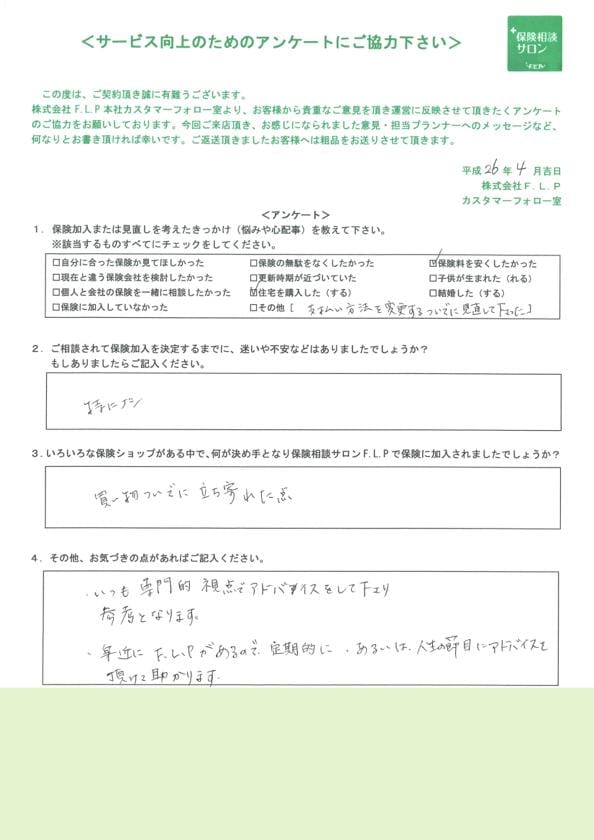 ＜サービス向上のためのアンケートにご協力下さい＞
保険相談
サロン
F.L.P
この度は、ご契約頂き誠に有難うございます。
株式会社F.L.P本社カスタマーフォロー室より、お客様から貴重なご意見を頂き運営に反映させて頂きたくアンケート
のご協力をお願いしております。今回ご来店頂き、お感じになられました意見・担当プランナーへのメッセージなど、
何なりとお書き頂ければ幸いです。ご返送頂きましたお客様へは粗品をお送りさせて頂きます。
平成 26 年 4 月吉日
株式会社F.L.P
カスタマーフォロー室
＜アンケート＞
1．保険加入または見直しを考えたきっかけ（悩みや心配事）を教えて下さい。
※該当するものすべてにチェックをしてください。
□自分に合った保険か見てほしかった □保険の無駄をなくしたかった ☑保険料を安くしたかった
□現在と違う保険会社を検討したかった □更新時期が近づいていた □子供が生まれた（れる）
□個人と会社の保険を一緒に相談したかった ☑住宅を購入した（する） □結婚した（する）
□保険に加入していなかった □その他 [ 支払い方法を変更するついでに見直して下さった ]
2．ご相談されて保険加入を決定するまでに、迷いや不安などはありましたでしょうか？
もしありましたらご記入ください。
特にナシ
3．いろいろな保険ショップがある中で、何が決め手となり保険相談サロンF.L.Pで保険に加入されましたでしょうか？
買い物ついでに立ち寄れた点
4．その他、お気づきの点があればご記入ください。
・いつも専門的視点でアドバイスをして下さり
参考となります。
・身近にF.L.Pがあるので、定期的に、あるいは、人生の節目にアドバイスを
頂けて助かります。